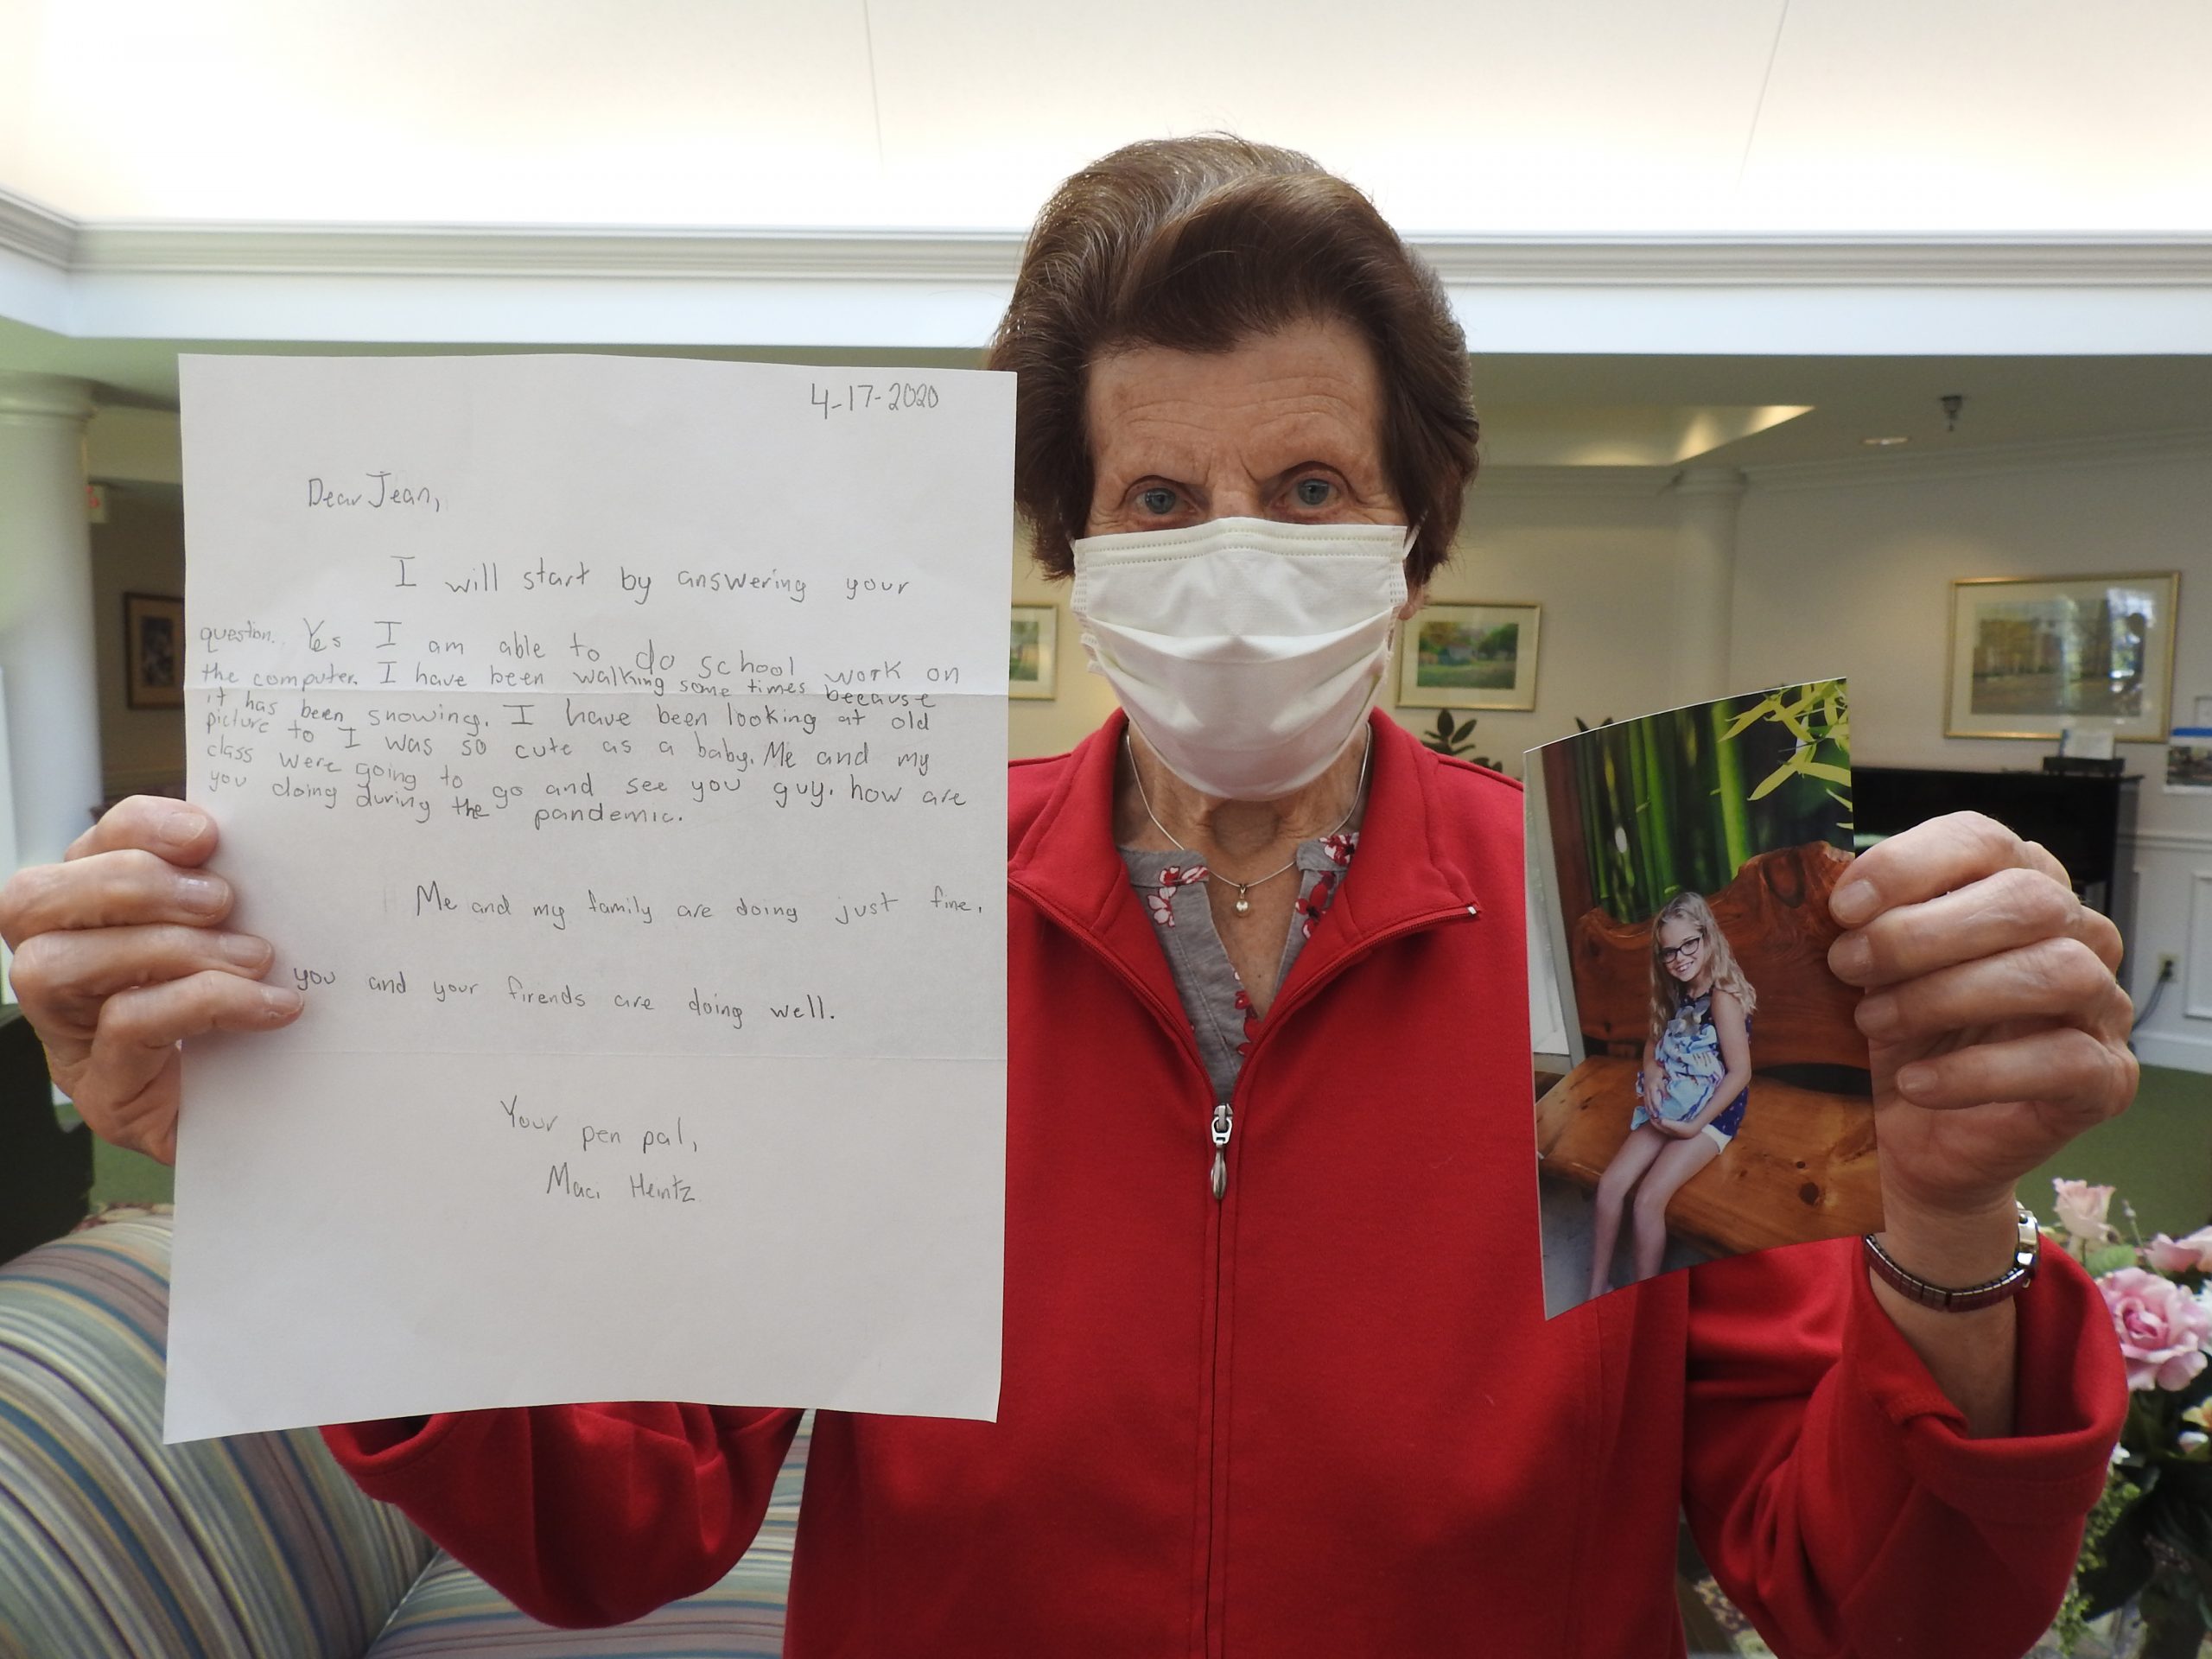 4-17-2020
Dear Jean,
I will start by answering your
question. Yes I am able to do school work on
the computer. I have been walking some times beecause
it has been snowing. I have been looking at old
picture to I was so cute as a baby. Me and my
class were going to go and see you guy. how are
you doing during the pandemic.
Me and my family are doing just fine.
you and your firends are doing well.
Your pen pal,
Maci Heintz